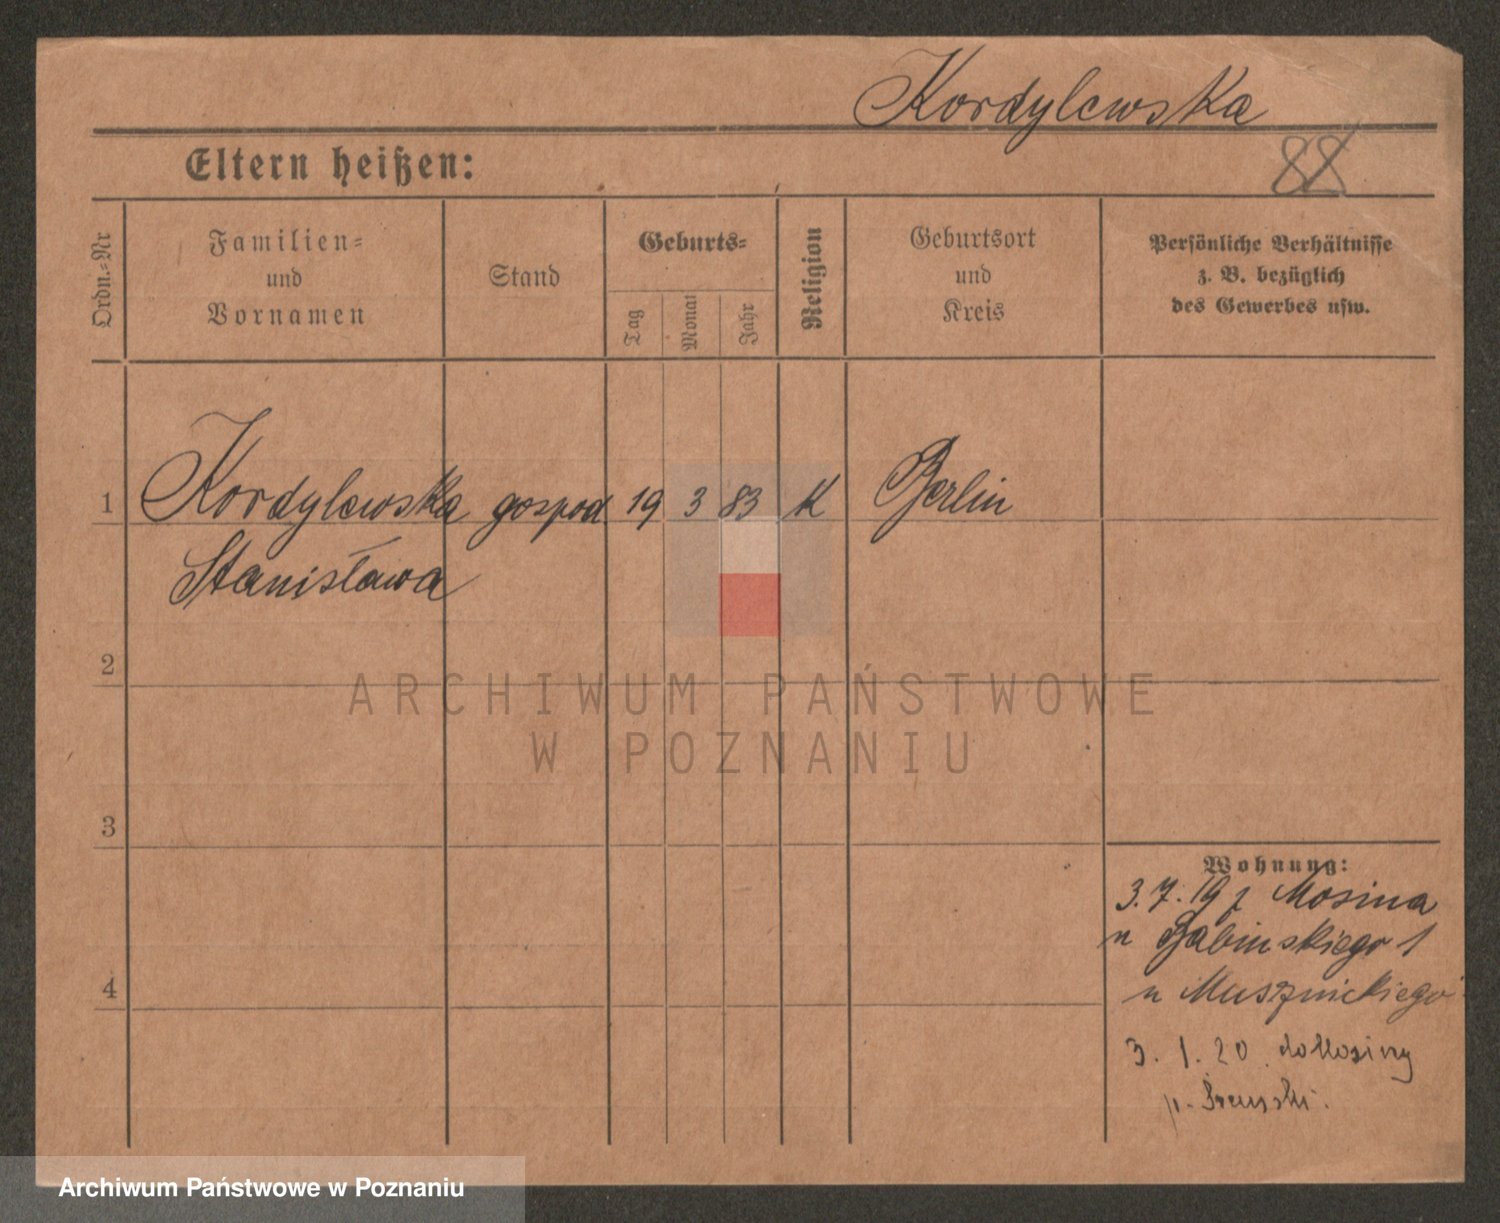 Kordylewska
Eltern heißen:
88
Ordn.-Nr
Familien-
und
Vornamen
Stand
Geburts-
Tag
Monat
Jahr
Religion
Geburtsort
und
Kreis
Persönliche Verhältnisse
z. B. bezüglich
des Gewerbes usw.
1 Kordylewska gospod 19 3 83 K Berlin
Stanisława
2
ARCHIWUM PAŃSTWOWE
W POZNANIU
3
4
Wohnung:
3.7.19 z Mosina
n Babinskiego 1
u Musznickiego
3. 1. 20. do Mosiny
p.
Archiwum Państwowe w Poznaniu